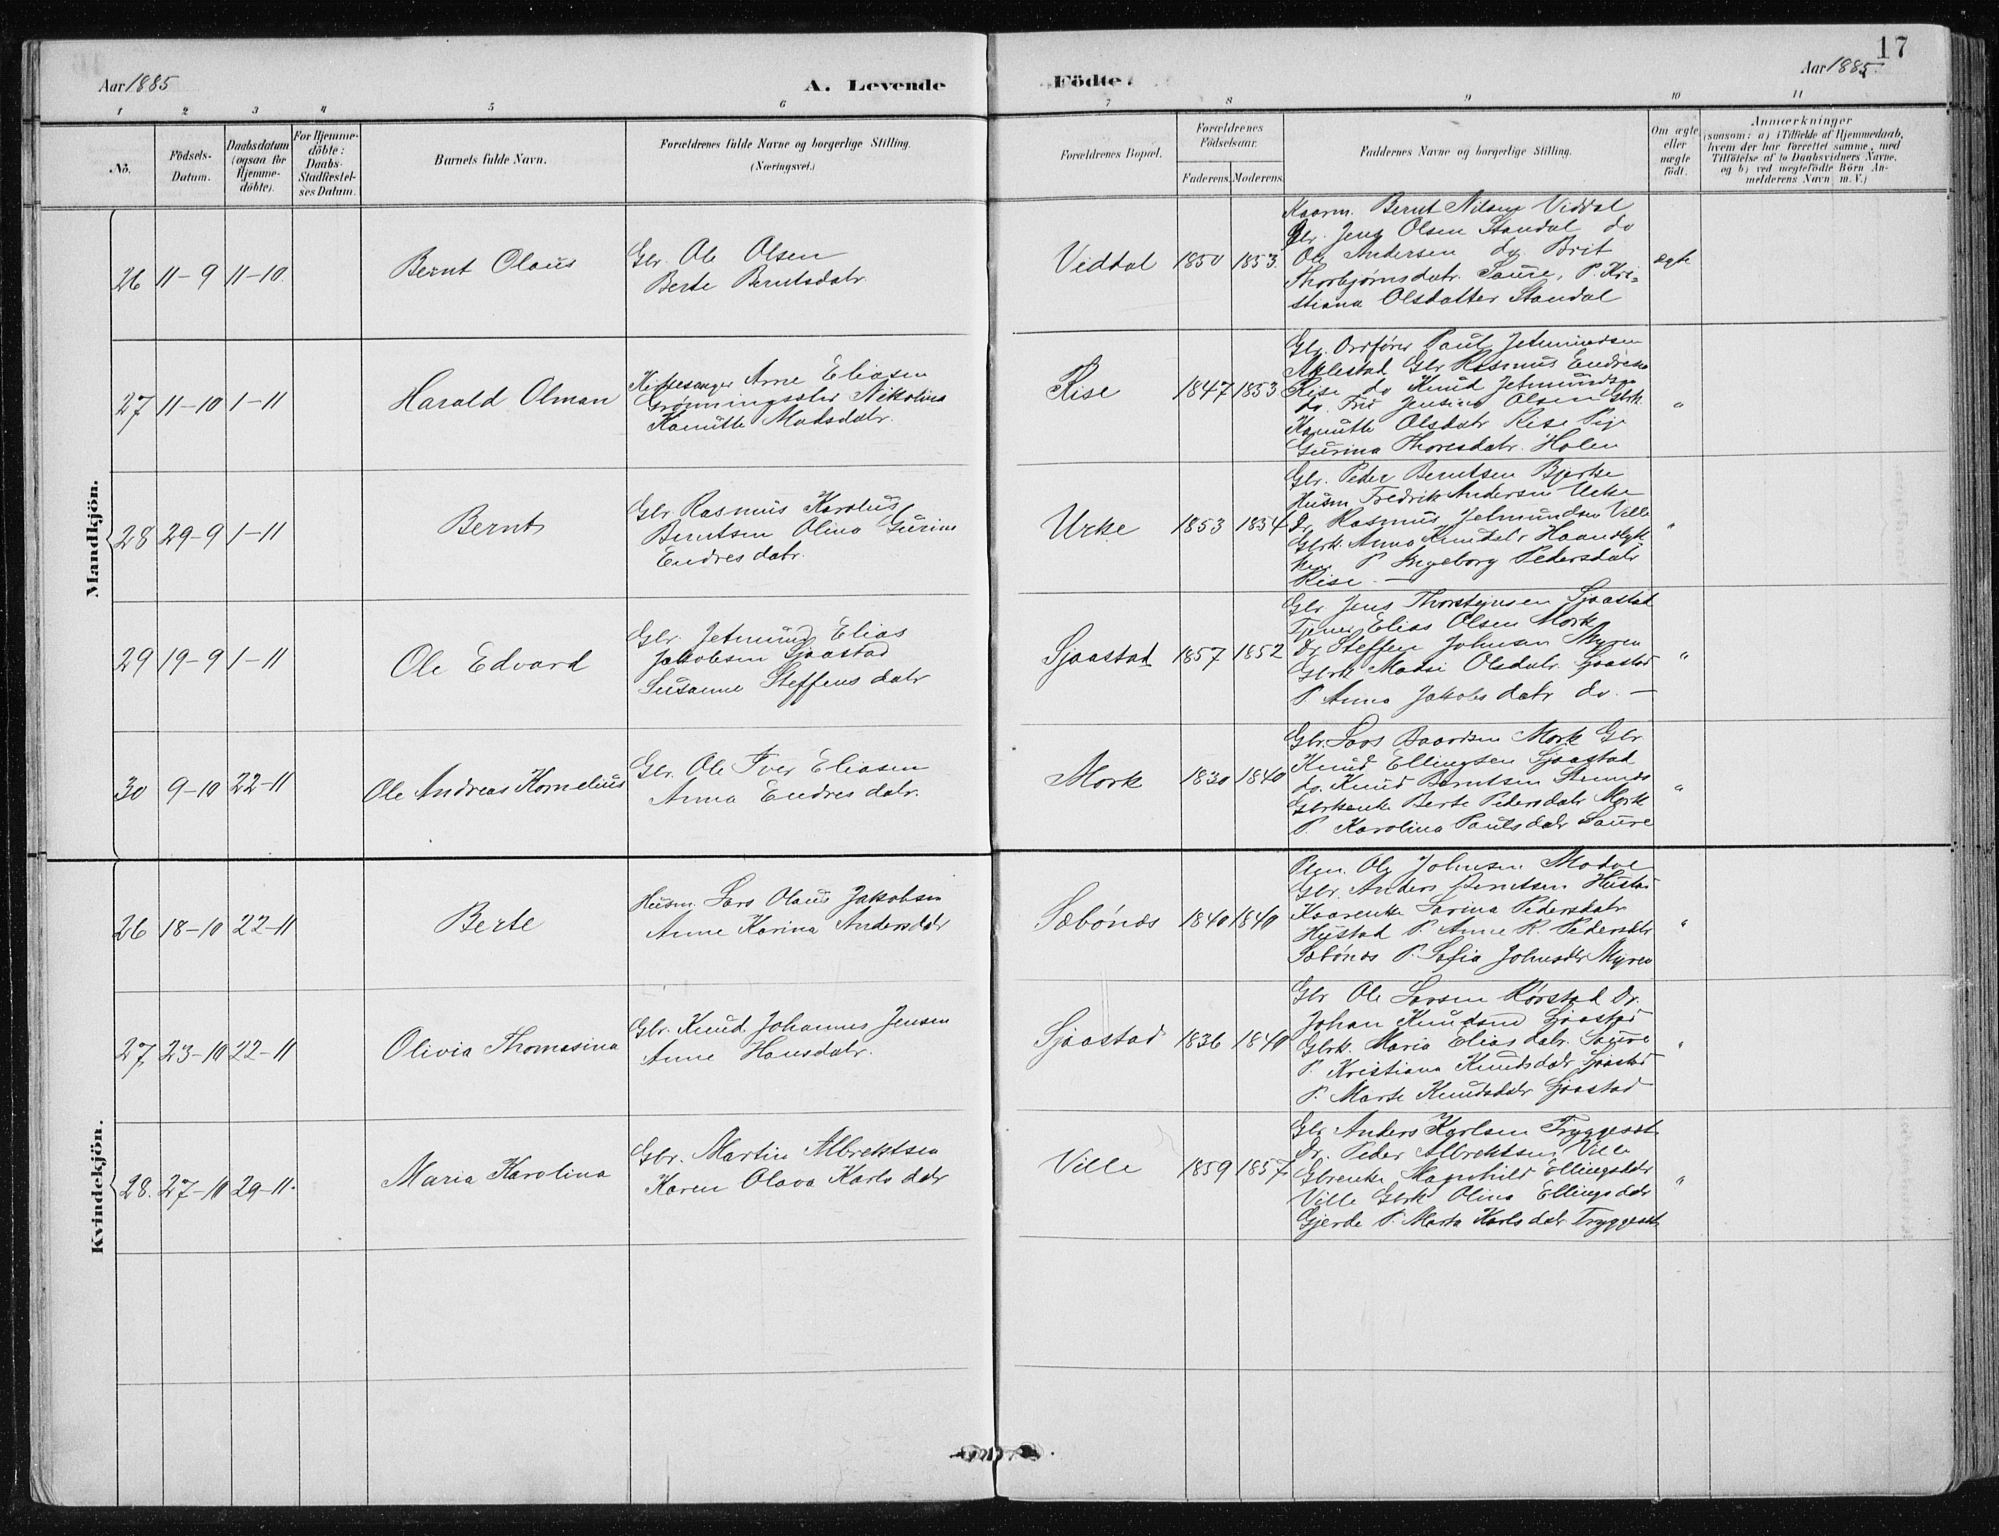 17
Aar 1885
A. Levende
Födte.
Aar 1885.
1 2 3 4 5 6 7 8 9 10 11
No.
Födsels-
Datum.
Daabsdatum
(ogsaa for
Hjemme-
döbte).
For Hjemme-
döbte:
Daabs-
Stadfæstel-
ses Datum.
Barnets fulde Navn.
Forældrenes fulde Navne og borgerlige Stilling.
(Næringsvei.)
Forældrenes Bopæl.
Forældrenes
Födselsaar.
Faderens. Moderens.
Faddernes Navne og borgerlige Stilling.
Om ægte
eller
uægte
födt.
Anmærkninger
(saasom: a) i Tilfælde af Hjemmedaab,
hvem der har forrettet samme, med
Tilföielse af to Daabsvidners Navne,
og b) ved uægtefödte Börn An-
melderens Navn m. V.)
Mandkjön.
26 11-9 11-10.
Bernt Olaus
Gbr. Ole Olsen
Berte Berntsdatr.
Viddal 1850 1853.
Kaarm. Bernt Nilsen Viddal
Gbr. Jens Olsen Standal do
Ole Andersen do Brit
Thorbjørnsdatr. Saure, P. Kri-
stiana Olsdatter Standal
ægte
27 11-10 1-11
Harald Olman
Kirkesanger Arne Eliasen
Grønningsæter Nikolina
Kanutte Madsdatr.
Rise 1847 1853
Gbr. Ordfører Paul Jetmundsen
Aalestad Gbr Rasmus Endresen
Rise do Knud Jetmunds.
do. Fru Jensine Olsen Gbrk.
Kanutte Olsdatr Rise Pige
Gurina Thoresdatr. Holen
"
28 29-9 1-11
Bernt
Gbr. Rasmus Karolus
Berntsen Olina Gurine
Endresdatr.
Urke 1853 1854
Gbr. Peder Berntsen Bjerke
Husm Fredrik Andersen Urke
Dr. Rasmus Jetmundsen Ville
Gbrk. Anna Knudsdr Haandlyk
ken P Ingeborg Pedersdatr
Rise. —
"
29 19-9 1-11
Ole Edvard
Gbr. Jetmund Elias
Jakobsen Sjaastad
Susanne Steffensdatr
Sjaastad 1857 1852
Gbr Jens Thorsteinsen Sjaastad
Tjener Elias Olsen Mork
Dr. Steffen Johnsen Myren
Gbrk Madsi Olsdatr. Sjaastad
P Anna Jakobsdatr do. —
"
30 9-10 22-11
Ole Andreas Kornelius
Gbr. Ole Iver Eliasen
Anna Endresdatr.
Mork 1830 1840
Gbr. Lars Baardsen Mork Gbr
Knud Ellingsen Sjaastad
do. Knud Berntsen
Gbrkenke Berte Pedersdatr Mork
P. Karolina Paulsdatr Saure
"
Kvindekjön.
26 18-10 22-11
Berte
Husm. Lars Olaus Jakobsen
Anne Karina Andersdatr
Sæbönæs 1840 1840
Ole Johnsen
Gbr. Anders Berntsen Hustad
Kaarenke Larina Pedersdatr
Hustad P Anne K. Pedersdatr
Sæbönæs P. Sofia Johnsdr Myren
"
27 23-10 22-11
Olivia Thomasina
Gbr. Knud Johannes Jensen
Anne Hansdatr.
Sjaastad 1836 1840
Gbr Ole Larsen Rörstad Dr.
Johan Knudsen Sjaastad
Gbrk. Maria Eliasdatr. Saure
P. Kristiana Knudsdatr Sjaastad
P. Marte Knudsdatr Sjaastad
"
28. 27-10 29-11.
Maria Karolina
Gbr. Martin Albrektsen
Karen Olava Karlsdatr
Ville 1859 1857
Gbr Anders Karlsen Tryggestad
Dr. Peder Albrektsen Ville
Gbrenke Magnhild Ellingsdatr
Ville Gbrk Olina Ellingsdatr
Gjerde P. Marta Karlsdatr Tryggestad
"